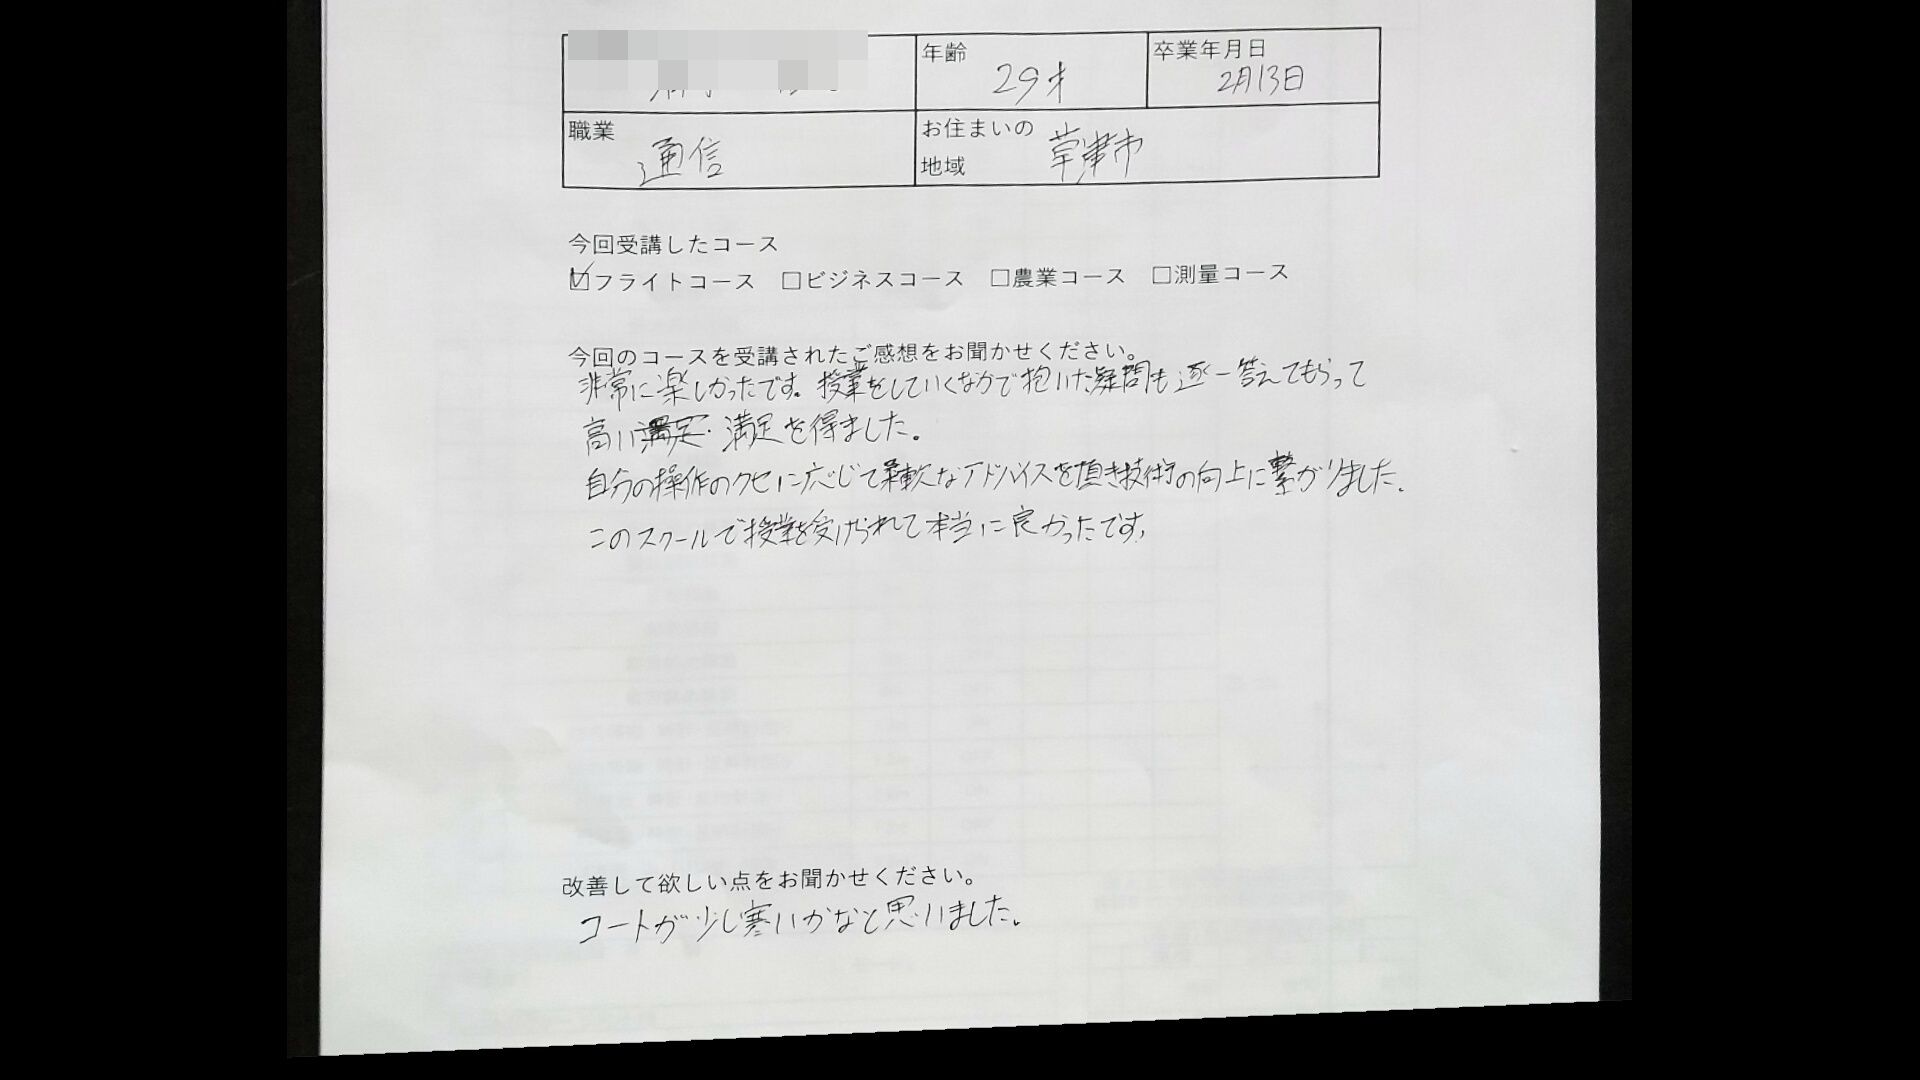 年齢
29才
卒業年月日
2月13日
職業
通信
お住まいの
地域
草津市
今回受講したコース
☑フライトコース □ビジネスコース □農業コース □測量コース
今回のコースを受講されたご感想をお聞かせください。
非常に楽しかったです。授業をしていくなかで抱いた疑問も逐一答えてもらって
高い満足を得ました。
自分の操作のクセに応じて柔軟なアドバイスを頂き技術の向上に繋がりました。
このスクールで授業を受けられて本当に良かったです。
改善して欲しい点をお聞かせください。
コートが少し寒いかなと思いました。